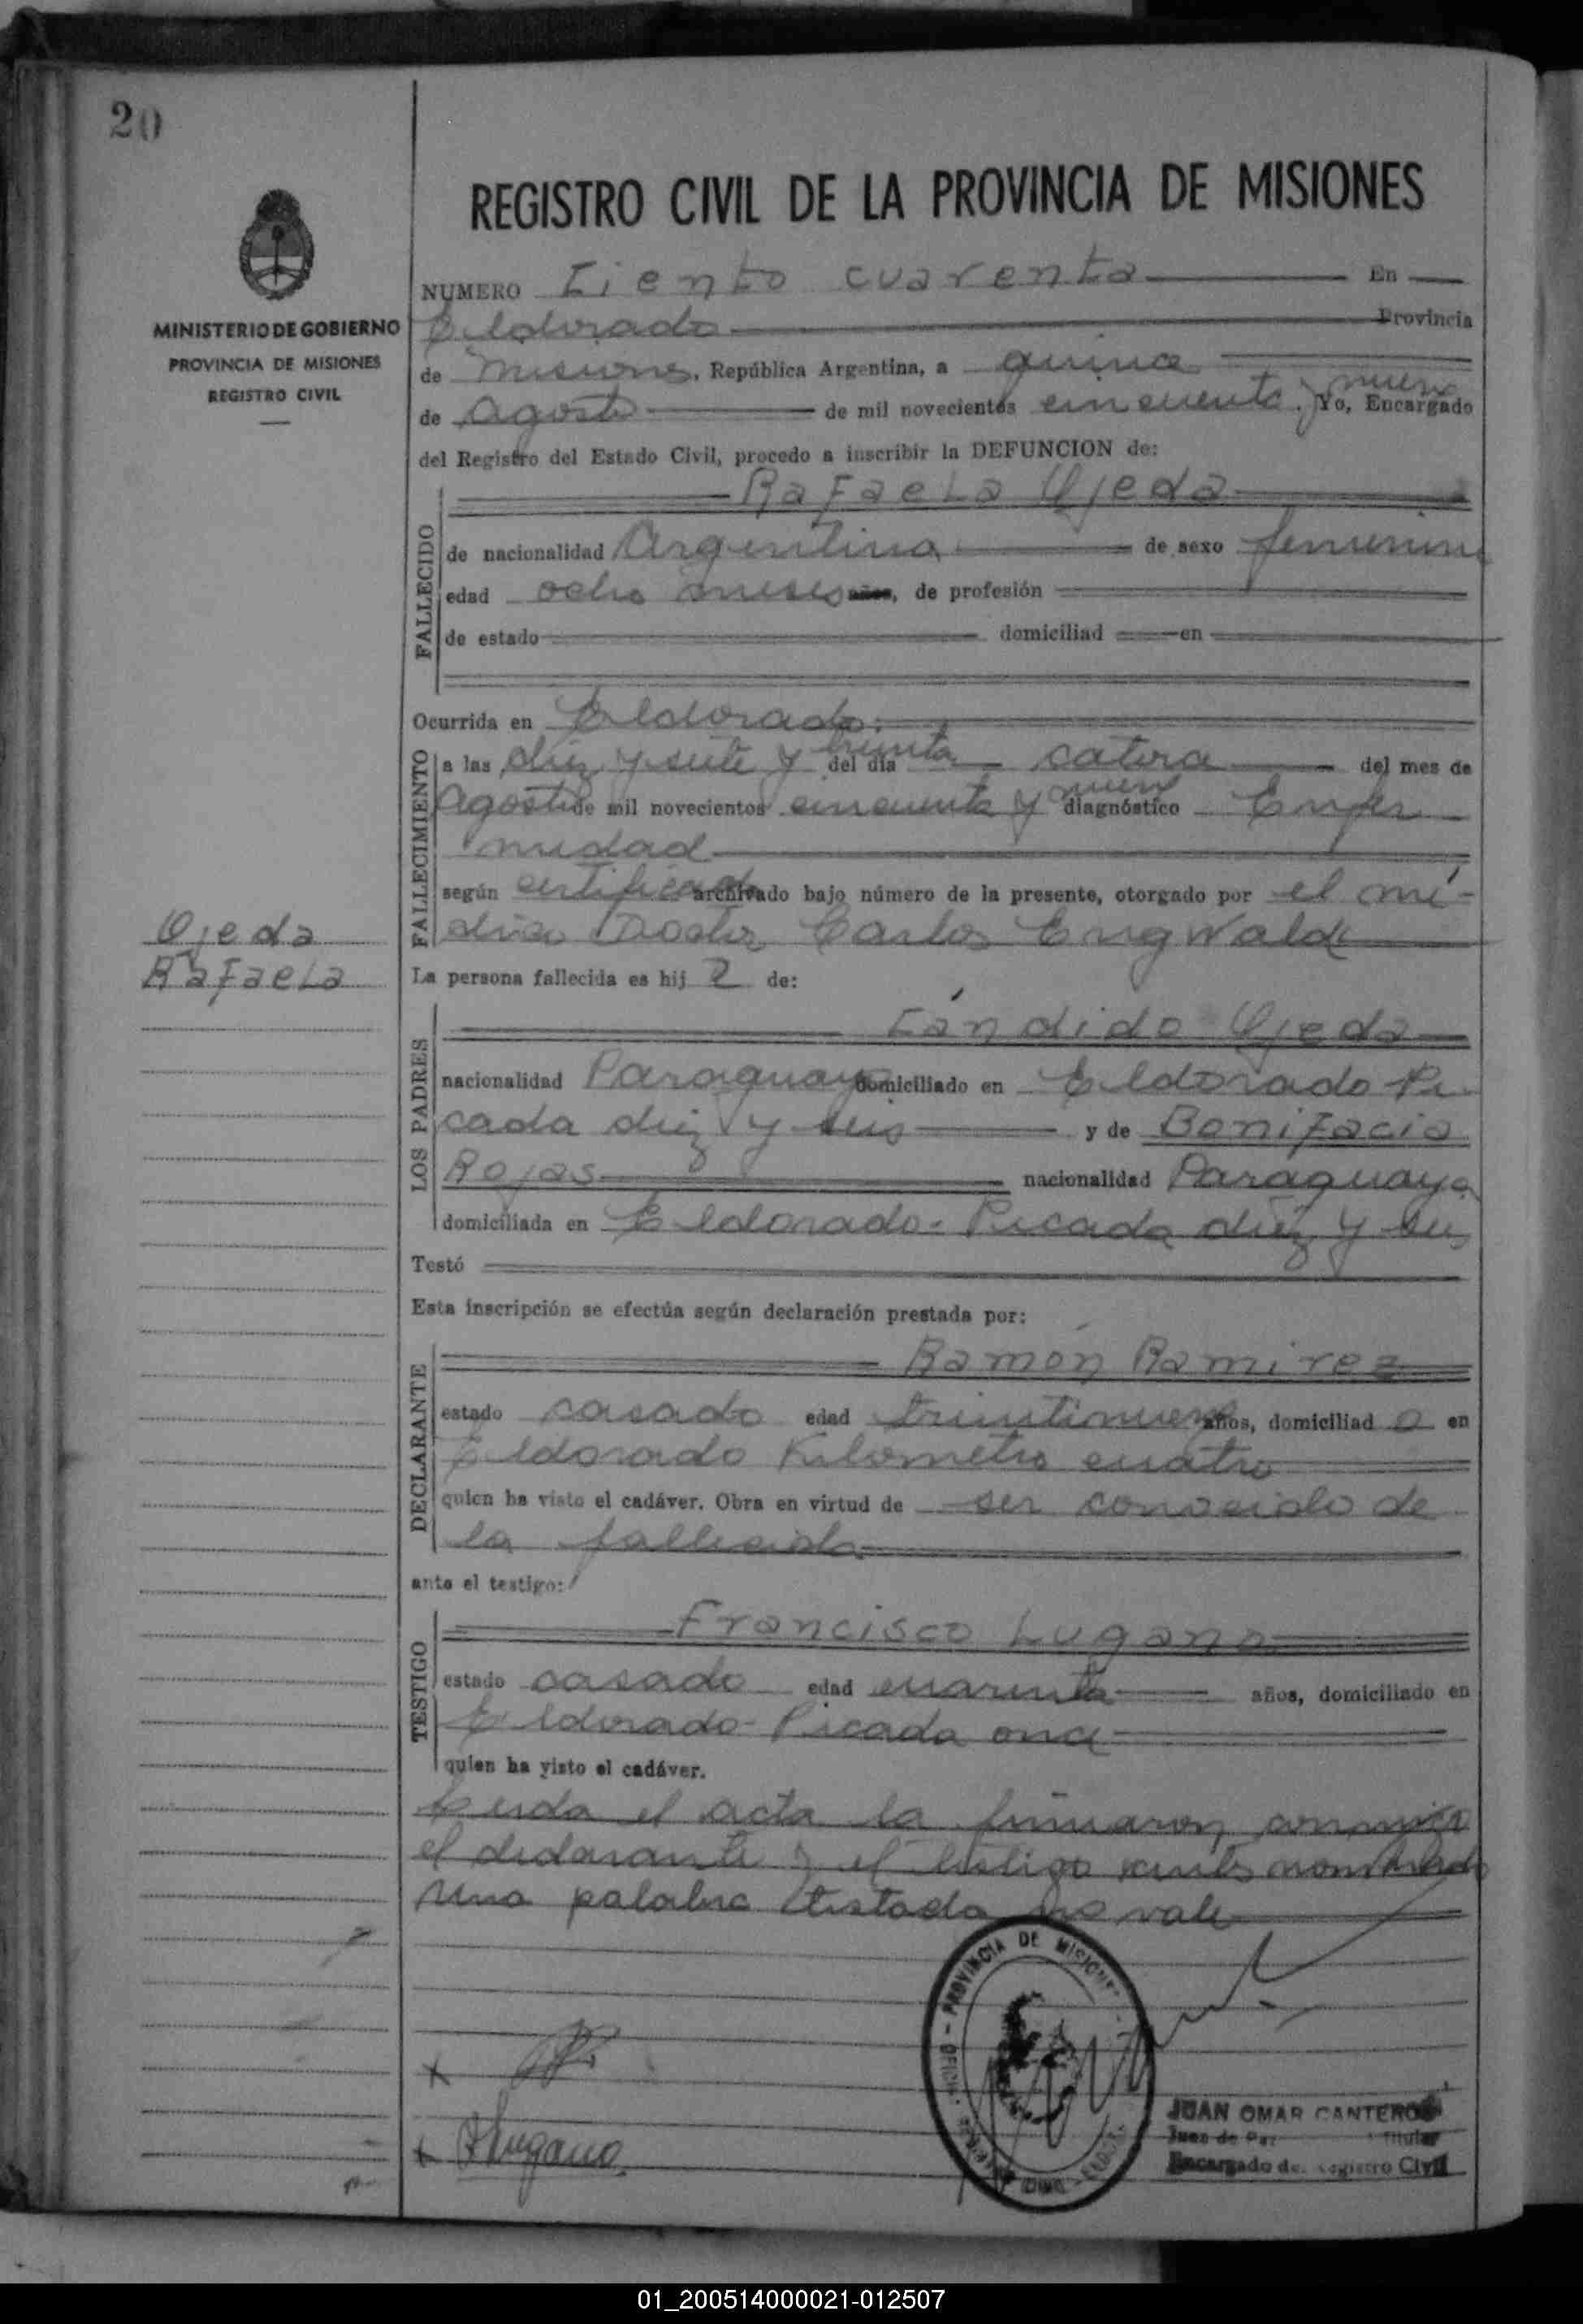 20
REGISTRO CIVIL DE LA PROVINCIA DE MISIONES
MINISTERIO DE GOBIERNO
PROVINCIA DE MISIONES
REGISTRO CIVIL
NUMERO Ciento cuarenta En
Eldorado Provincia
de Misiones, República Argentina, a quince
de Agosto de mil novecientos cincuenta y nueve. Yo, Encargado
del Registro del Estado Civil, procedo a inscribir la DEFUNCION de:
Rafaela Ojeda
FALLECIDO
de nacionalidad Argentina de sexo femenino
edad ocho meses años, de profesión
de estado domiciliad en
Ocurrida en Eldorado.
FALLECIMIENTO
a las diez y siete y treinta del día catorce del mes de
Agosto de mil novecientos cincuenta y nueve diagnóstico Enfer
medad
según certificado archivado bajo número de la presente, otorgado por el mé-
dico Doctor Carlos Engwald
Ojeda
Rafaela
La persona fallecida es hij a de:
LOS PADRES
Cándido Ojeda
nacionalidad Paraguayo domiciliado en Eldorado Pi
cada diez y seis y de Bonifacia
Rojas nacionalidad Paraguaya
domiciliada en Eldorado - Picada diez y seis
Testó
Esta inscripción se efectúa según declaración prestada por:
DECLARANTE
Ramón Ramirez
estado casado edad treintinueve años, domiciliad o en
Eldorado Kilometro cuatro
quien ha visto el cadáver. Obra en virtud de ser conocido de
la fallecida
ante el testigo:
TESTIGO
Francisco Lugano
estado casado edad cuarenta años, domiciliado en
Eldorado - Picada once
quien ha visto el cadáver.
Leida el acta la firmaron conmigo
el declarante y el testigo antes nombrado
Una palabra testada no vale
PROVINCIA DE MISIONES
JUAN OMAR CANTEROS
Juez de Paz Titular
Encargado del Registro Civil
x
x Lugano
01_200514000021-012507